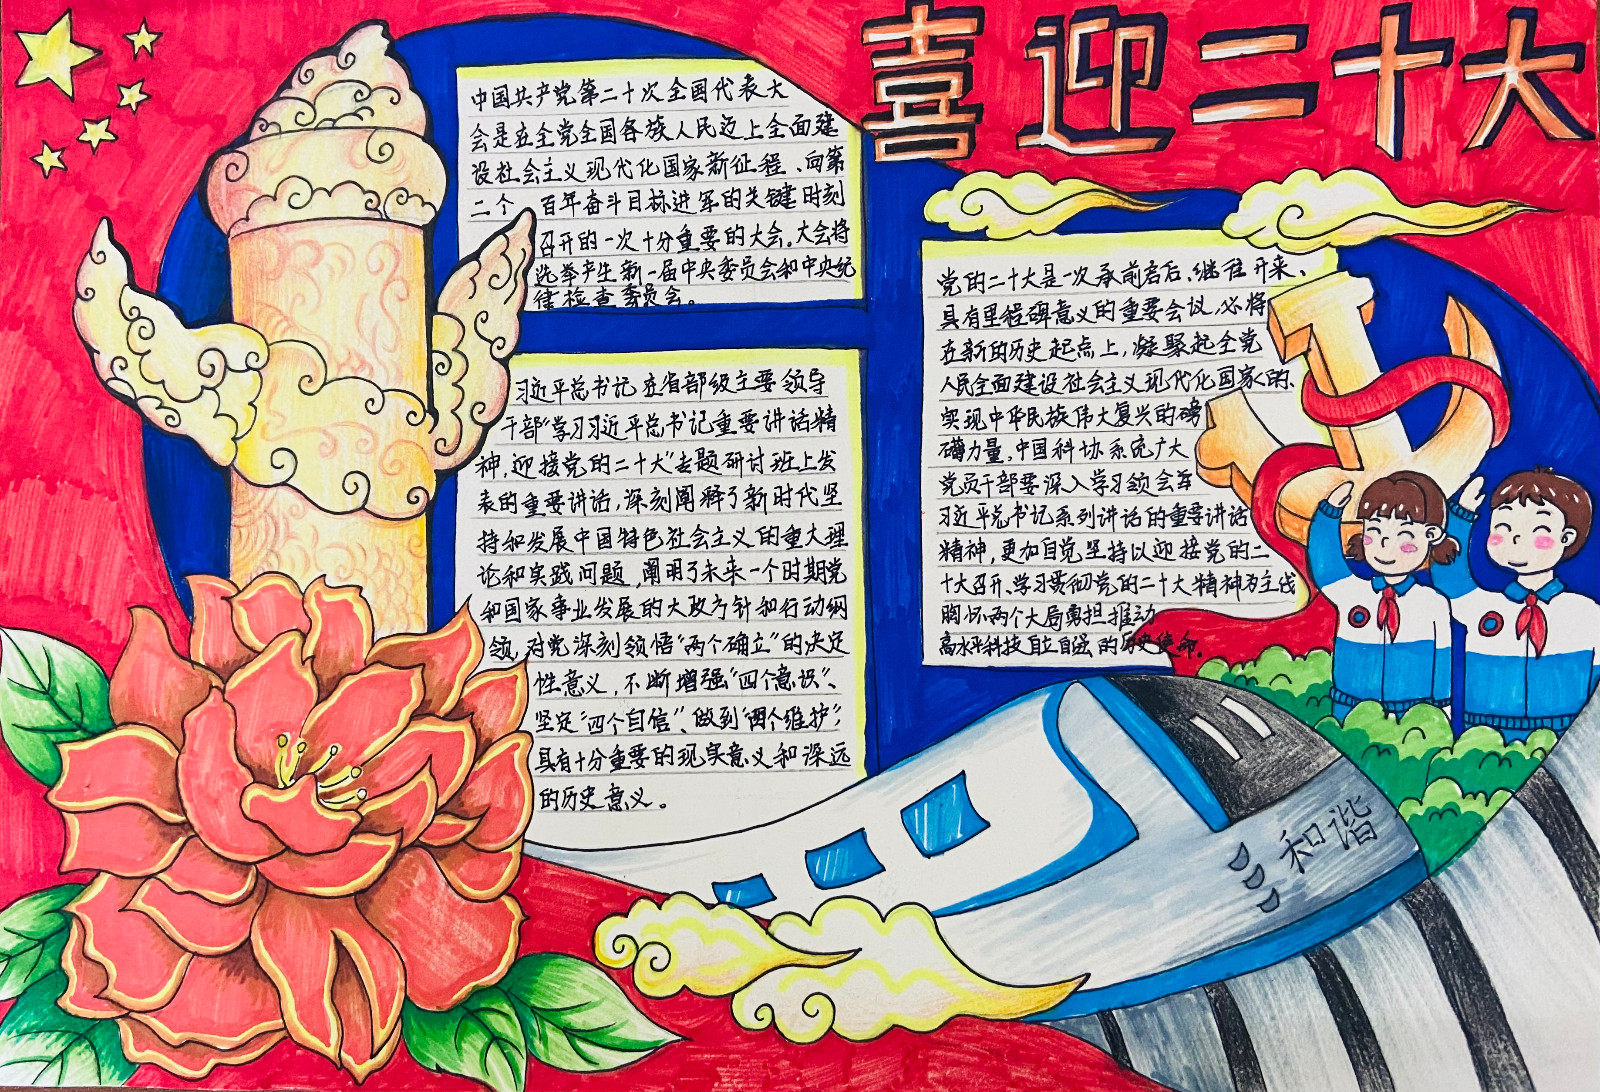 喜迎二十大
中国共产党第二十次全国代表大
会是在全党全国各族人民迈上全面建
设社会主义现代化国家新征程、向第
二个 百年奋斗目标进军的关键时刻
召开的一次十分重要的大会。大会将
选举产生新一届中央委员会和中央纪
律检查委员会。
习近平总书记在省部级主要领导
干部“学习习近平总书记重要讲话精
神，迎接党的二十大”专题研讨班上发
表的重要讲话，深刻阐释了新时代坚
持和发展中国特色社会主义的重大理
论和实践问题，阐明了未来一个时期党
和国家事业发展的大政方针和行动纲
领，对党深刻领悟“两个确立”的决定
性意义，不断增强“四个意识”、
坚定“四个自信”、做到“两个维护”，
具有十分重要的现实意义和深远
的历史意义。
党的二十大是一次承前启后、继往开来、
具有里程碑意义的重要会议，必将
在新的历史起点上，凝聚起全党
人民全面建设社会主义现代化国家的、
实现中华民族伟大复兴的磅
礴力量。中国科协系统广大
党员干部要深入学习领会
习近平总书记系列讲话的重要讲话
精神，更加自觉坚持以迎接党的二
十大召开、学习贯彻党的二十大精神为主线
胸怀两个大局勇担推动
高水平科技自立自强的历史使命。
和谐